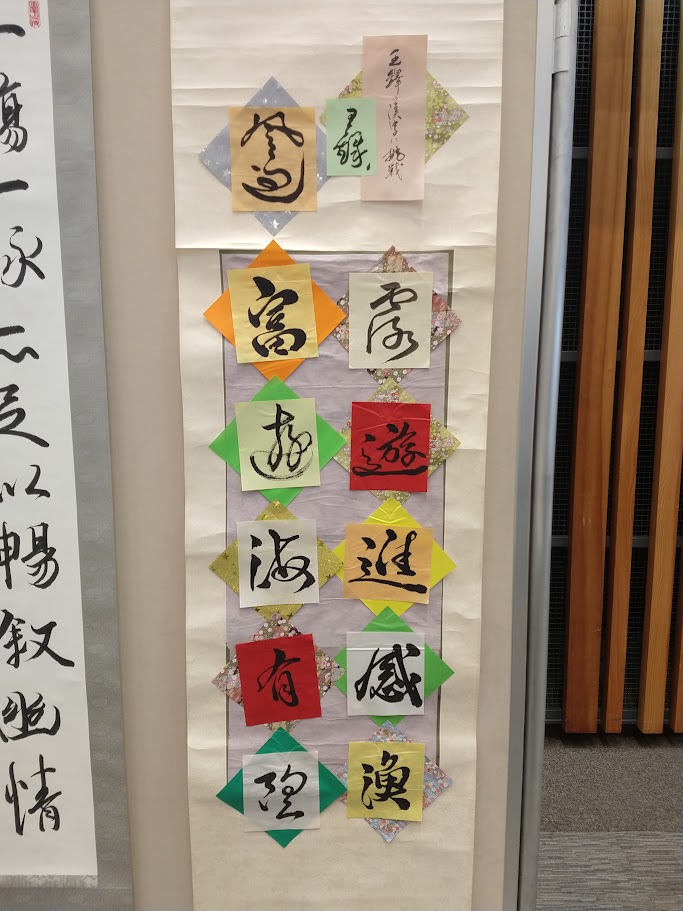 王鐸の漢字に挑戦
王鐸
遊
進
感
漁
富
遊
海
有
一觴一詠亦足以暢叙幽情